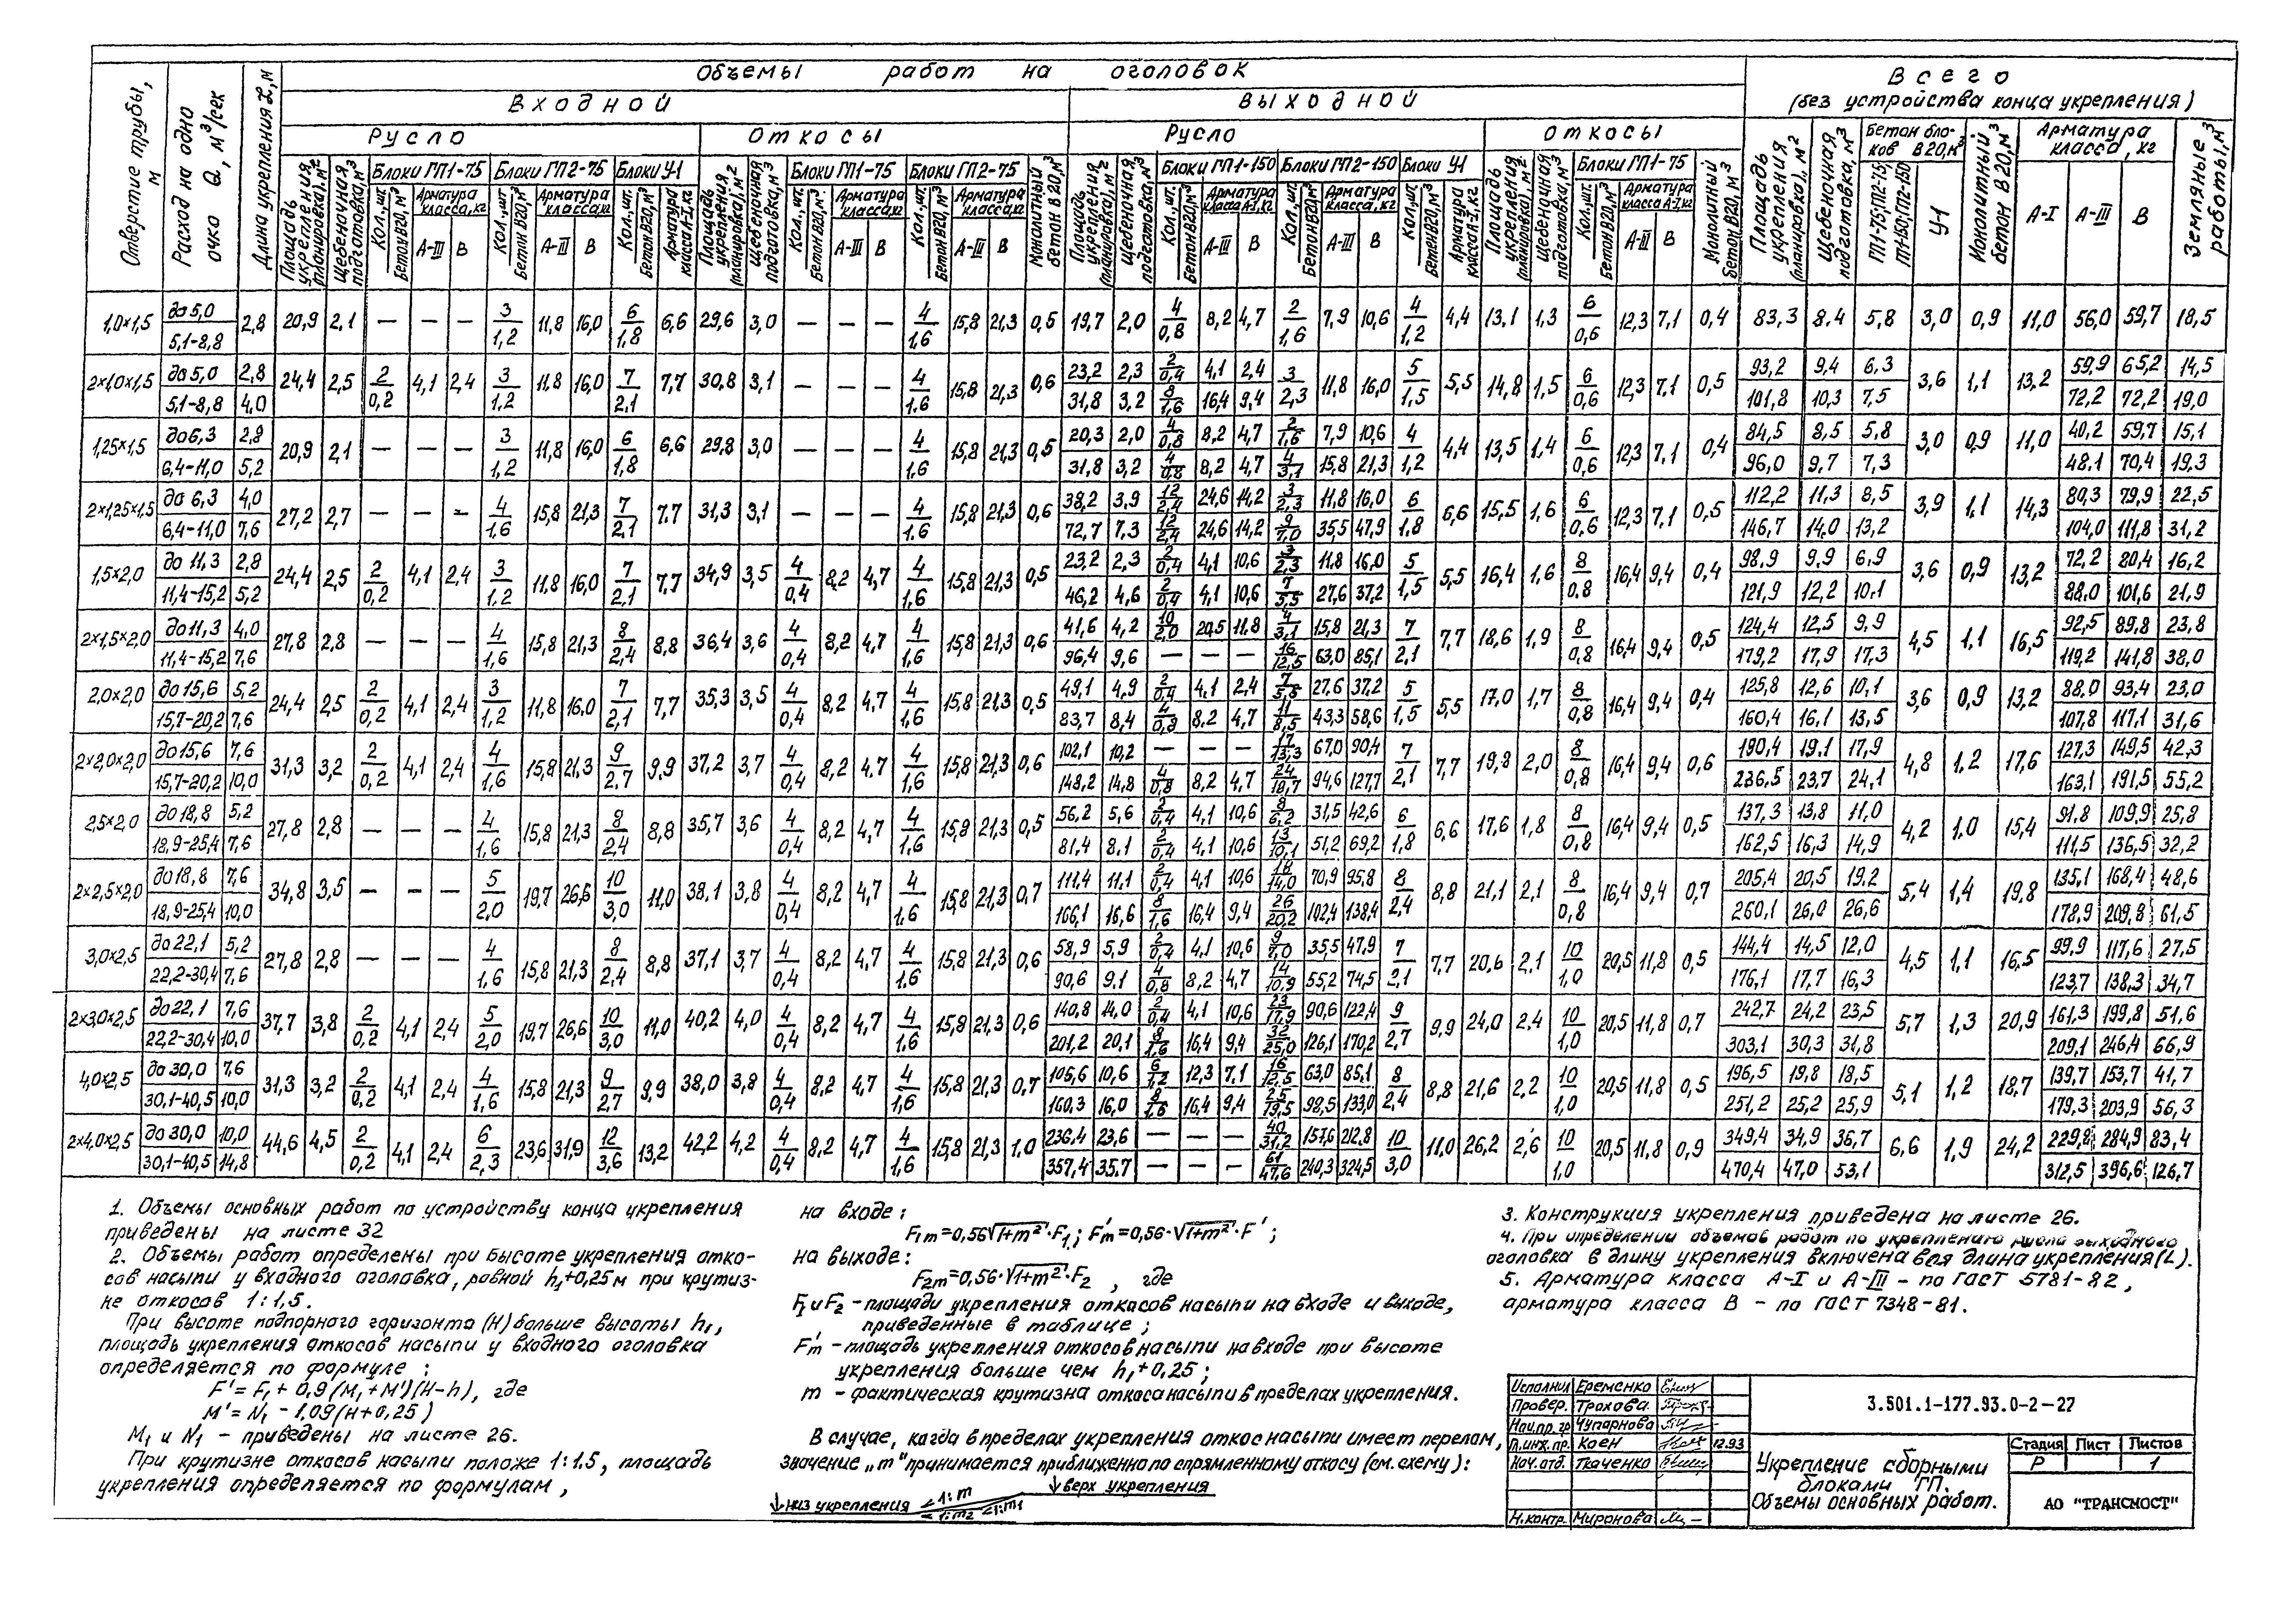 Объемы работ на оголовок
Всего
(без устройства конца укрепления)
Входной
Выходной
Русло
Откосы
Русло
Откосы
Отверстие трубы, м
Расход на одно очка Q, м³/сек
Длина укрепления L, м
Площадь укрепления (планировка), м²
Щебеночная подготовка, м³
Блоки ГП1-75
Блоки ГП2-75
Блоки У-1
Кол., шт.
Бетон В20, м³
Арматура класса, кг
А-III
В
Арматура класса А-I, кг
Монолитный бетон В20, м³
Блоки ГП1-150
Блоки ГП2-150
Блоки У1
Бетон блоков В20, м³
ГП1-75; ГП2-75; ГП1-150; ГП2-150
У-1
Монолитный бетон В20, м³
Арматура класса, кг
А-I
А-III
В
Земляные работы, м³
1,0×1,5 до 5,0 2,8 20,9 2,1 — — — 3/1,2 11,8 16,0 6/1,8 6,6 29,6 3,0 — — — 4/1,6 15,8 21,3 0,5 19,7 2,0 4/0,8 8,2 4,7 2/1,6 7,9 10,6 4/1,2 4,4 13,1 1,3 6/0,6 12,3 7,1 0,4 83,3 8,4 5,8 3,0 0,9 11,0 56,0 59,7 18,5
5,1-8,8
2×1,0×1,5 до 5,0 2,8 24,4 2,5 2/0,2 4,1 2,4 3/1,2 11,8 16,0 7/2,1 7,7 30,8 3,1 — — — 4/1,6 15,8 21,3 0,6 23,2 2,3 2/0,4 4,1 2,4 3/2,3 11,8 16,0 5/1,5 5,5 14,8 1,5 6/0,6 12,3 7,1 0,5 93,2 9,4 6,3 3,6 1,1 13,2 59,9 65,2 14,5
5,1-8,8 4,0 31,8 3,2 8/1,6 16,4 9,4 101,8 10,3 7,5 72,2 72,2 19,0
1,25×1,5 до 6,3 2,8 20,9 2,1 — — — 3/1,2 11,8 16,0 6/1,8 6,6 29,8 3,0 — — — 4/1,6 15,8 21,3 0,5 20,3 2,0 4/0,8 8,2 4,7 2/1,6 7,9 10,6 4/1,2 4,4 13,5 1,4 6/0,6 12,3 7,1 0,4 84,5 8,5 5,8 3,0 0,9 11,0 40,2 59,7 15,1
6,4-11,0 5,2 31,8 3,2 4/0,8 8,2 4,7 4/3,1 15,8 21,3 96,0 9,7 7,3 48,1 70,4 19,3
2×1,25×1,5 до 6,3 4,0 27,2 2,7 — — — 4/1,6 15,8 21,3 7/2,1 7,7 31,3 3,1 — — — 4/1,6 15,8 21,3 0,6 38,2 3,9 12/2,4 24,6 14,2 3/2,3 11,8 16,0 6/1,8 6,6 15,5 1,6 6/0,6 12,3 7,1 0,5 112,2 11,3 8,5 3,9 1,1 14,3 80,3 79,9 22,5
6,4-11,0 7,6 72,7 7,3 12/2,4 24,6 14,2 9/7,0 35,5 47,9 146,7 14,0 13,2 104,0 111,8 31,2
1,5×2,0 до 11,3 2,8 24,4 2,5 2/0,2 4,1 2,4 3/1,2 11,8 16,0 7/2,1 7,7 34,9 3,5 4/0,4 8,2 4,7 4/1,6 15,8 21,3 0,5 23,2 2,3 2/0,4 4,1 10,6 3/2,3 11,8 16,0 5/1,5 5,5 16,4 1,6 8/0,8 16,4 9,4 0,4 98,9 9,9 6,9 3,6 0,9 13,2 72,2 80,4 16,2
11,4-15,2 5,2 46,2 4,6 2/0,4 4,1 10,6 7/5,5 27,6 37,2 121,9 12,2 10,1 88,0 101,6 21,9
2×1,5×2,0 до 11,3 4,0 27,8 2,8 — — — 4/1,6 15,8 21,3 8/2,4 8,8 36,4 3,6 4/0,4 8,2 4,7 4/1,6 15,8 21,3 0,6 41,6 4,2 10/2,0 20,5 11,8 4/3,1 15,8 21,3 7/2,1 7,7 18,6 1,9 8/0,8 16,4 9,4 0,5 124,4 12,5 9,9 4,5 1,1 16,5 92,5 89,8 23,8
11,4-15,2 7,6 96,4 9,6 — — — 16/12,5 63,0 85,1 179,2 17,9 17,3 119,2 141,8 38,0
2,0×2,0 до 15,6 5,2 24,4 2,5 2/0,2 4,1 2,4 3/1,2 11,8 16,0 7/2,1 7,7 35,3 3,5 4/0,4 8,2 4,7 4/1,6 15,8 21,3 0,5 49,1 4,9 2/0,4 4,1 2,4 7/5,5 27,6 37,2 5/1,5 5,5 17,0 1,7 8/0,8 16,4 9,4 0,4 125,8 12,6 10,1 3,6 0,9 13,2 88,0 93,4 23,0
15,7-20,2 7,6 83,7 8,4 4/0,8 8,2 4,7 11/8,5 43,3 58,6 160,4 16,1 13,5 107,8 117,1 31,6
2×2,0×2,0 до 15,6 7,6 31,3 3,2 2/0,2 4,1 2,4 4/1,6 15,8 21,3 9/2,7 9,9 37,2 3,7 4/0,4 8,2 4,7 4/1,6 15,8 21,3 0,6 102,1 10,2 — — — 17/13,3 67,0 90,4 7/2,1 7,7 19,8 2,0 8/0,8 16,4 9,4 0,6 190,4 19,1 17,9 4,8 1,2 17,6 127,3 149,5 42,3
15,7-20,2 10,0 148,2 14,8 4/0,8 8,2 4,7 24/18,7 94,6 127,7 236,5 23,7 24,1 163,1 191,5 55,2
2,5×2,0 до 18,8 5,2 27,8 2,8 — — — 4/1,6 15,8 21,3 8/2,4 8,8 35,7 3,6 4/0,4 8,2 4,7 4/1,6 15,8 21,3 0,5 56,2 5,6 2/0,4 4,1 10,6 8/6,2 31,5 42,6 6/1,8 6,6 17,6 1,8 8/0,8 16,4 9,4 0,5 137,3 13,8 11,0 4,2 1,0 15,4 91,8 109,9 25,8
18,9-25,4 7,6 81,4 8,1 2/0,4 4,1 10,6 13/10,1 51,2 69,2 162,5 16,3 14,9 111,5 136,5 32,2
2×2,5×2,0 до 18,8 7,6 34,8 3,5 — — — 5/2,0 19,7 26,6 10/3,0 11,0 38,1 3,8 4/0,4 8,2 4,7 4/1,6 15,8 21,3 0,7 111,4 11,1 2/0,4 4,1 10,6 18/14,0 70,9 95,8 8/2,4 8,8 21,1 2,1 8/0,8 16,4 9,4 0,7 205,4 20,5 19,2 5,4 1,4 19,8 135,1 168,4 48,6
18,9-25,4 10,0 166,1 16,6 8/1,6 16,4 9,4 26/20,2 102,4 138,4 260,1 26,0 26,6 178,9 209,8 61,5
3,0×2,5 до 22,1 5,2 27,8 2,8 — — — 4/1,6 15,8 21,3 8/2,4 8,8 37,1 3,7 4/0,4 8,2 4,7 4/1,6 15,8 21,3 0,6 58,9 5,9 2/0,4 4,1 10,6 9/7,0 35,5 47,9 7/2,1 7,7 20,6 2,1 10/1,0 20,5 11,8 0,5 144,4 14,5 12,0 4,5 1,1 16,5 99,9 117,6 27,5
22,2-30,4 7,6 90,6 9,1 4/0,8 8,2 4,7 14/10,9 55,2 74,5 176,1 17,7 16,3 123,7 138,3 34,7
2×3,0×2,5 до 22,1 7,6 37,7 3,8 2/0,2 4,1 2,4 5/2,0 19,7 26,6 10/3,0 11,0 40,2 4,0 4/0,4 8,2 4,7 4/1,6 15,8 21,3 0,6 140,8 14,0 2/0,4 4,1 10,6 23/17,9 90,6 122,4 9/2,7 9,9 24,0 2,4 10/1,0 20,5 11,8 0,7 242,7 24,2 23,5 5,7 1,3 20,9 161,3 199,8 51,6
22,2-30,4 10,0 201,2 20,1 8/1,6 16,4 9,4 32/25,0 126,1 170,2 303,1 30,3 31,8 209,1 246,4 66,9
4,0×2,5 до 30,0 7,6 31,3 3,2 2/0,2 4,1 2,4 4/1,6 15,8 21,3 9/2,7 9,9 38,0 3,8 4/0,4 8,2 4,7 4/1,6 15,8 21,3 0,7 105,6 10,6 6/1,2 12,3 7,1 16/12,5 63,0 85,1 8/2,4 8,8 21,6 2,2 10/1,0 20,5 11,8 0,5 196,5 19,8 18,5 5,1 1,2 18,7 139,7 153,7 41,7
30,1-40,5 10,0 160,3 16,0 8/1,6 16,4 9,4 25/19,5 98,5 133,0 251,2 25,2 25,9 179,3 203,9 56,3
2×4,0×2,5 до 30,0 10,0 44,6 4,5 2/0,2 4,1 2,4 6/2,3 23,6 31,9 12/3,6 13,2 42,2 4,2 4/0,4 8,2 4,7 4/1,6 15,8 21,3 1,0 236,4 23,6 — — — 40/31,2 157,6 212,8 10/3,0 11,0 26,2 2,6 10/1,0 20,5 11,8 0,9 349,4 34,9 36,7 6,6 1,9 24,2 229,8 284,9 83,4
30,1-40,5 14,8 357,4 35,7 — — — 61/47,6 240,3 324,5 470,4 47,0 53,1 312,5 396,6 126,7
1. Объемы основных работ по устройству конца укрепления
приведены на листе 32
2. Объемы работ определены при высоте укрепления отко-
сов насыпи у входного оголовка, равной h₁+0,25м при крутиз-
не откосов 1:1,5.
При высоте подпорного горизонта (H) больше высоты h₁,
площадь укрепления откосов насыпи у входного оголовка
определяется по формуле:
F' = F₁ + 0,9(M₁+M')(H-h), где
M' = N₁ - 1,09(H+0,25)
M₁ и N₁ - приведены на листе 26.
При крутизне откосов насыпи положе 1:1.5, площадь
укрепления определяется по формулам,
на входе:
F₁m=0,56√1+m²·F₁; F'm=0,56·√1+m²·F';
на выходе:
F₂m=0,56·√1+m²·F₂, где
F₁ и F₂ - площади укрепления откосов насыпи на входе и выходе,
приведенные в таблице;
F'm - площадь укрепления откосов насыпи на входе при высоте
укрепления больше чем h₁+0,25;
m - фактическая крутизна откоса насыпи в пределах укрепления.
В случае, когда в пределах укрепления откос насыпи имеет перелом,
значение „m" принимается приближенно по спрямленному откосу (см. схему):
низ укрепления 1:m 1:m₂ 1:m₁ верх укрепления
3. Конструкция укрепления приведена на листе 26.
4. При определении объемов работ по укреплению русла выходного
оголовка в длину укрепления включена вся длина укрепления (L).
5. Арматура класса А-I и А-III - по ГОСТ 5781-82,
арматура класса В - по ГОСТ 7348-81.
Исполнил Еременко
Провер. Трохова
Нач.пр.гр Чупарнова
Гл.инж.пр. Коен 12.93
Нач.отд. Ткаченко
Н.контр. Миронова
3.501.1-177.93.0-2-27
Укрепление сборными
блоками ГП.
Объемы основных работ.
Стадия Лист Листов
Р 1
АО "ТРАНСМОСТ"